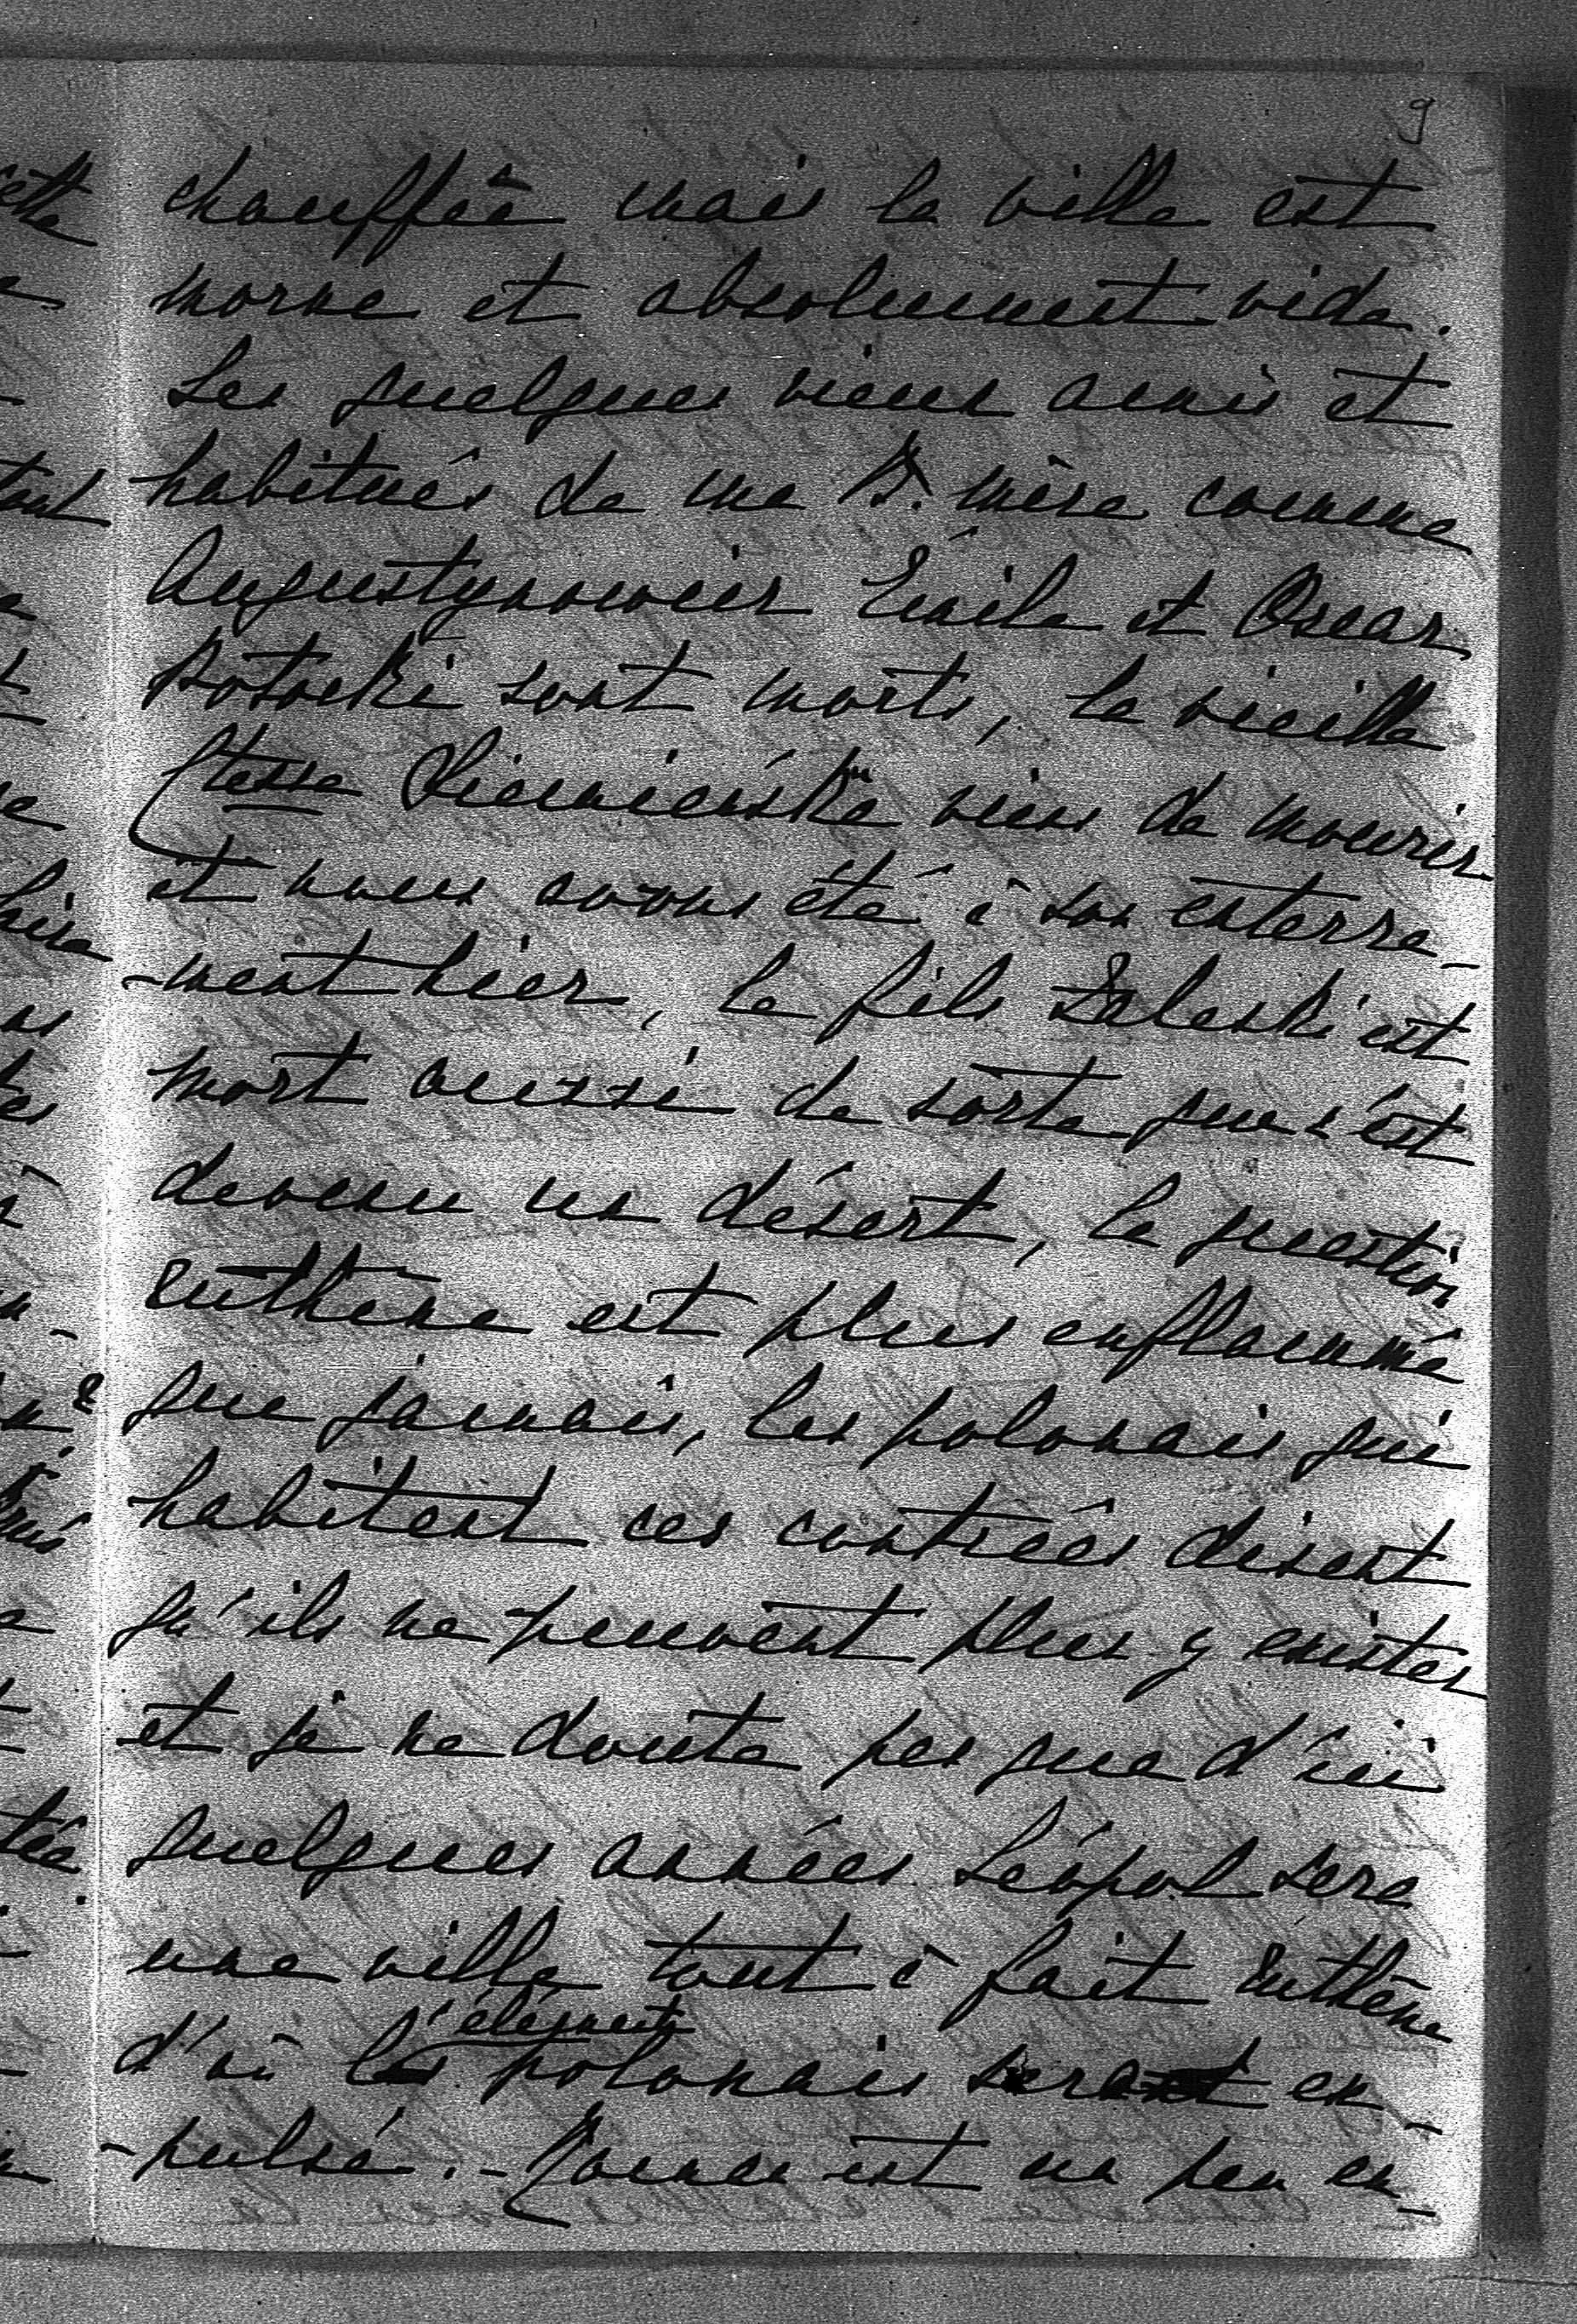 9
chauffée mais la ville est
morne et absolument vide.
Les quelques vieux amis et
habitués de ma B. mère comme
Augustynowicz Émile et Oscar
Potocki sont morts, la vieille
Ctesse Siemieńska vient de mourir
et nous avons été à son enterre-
-ment hier, le fils Zaleski est
mort aussi de sorte que c'est
devenu un désert, la question
ruthène est plus enflammée
que jamais, les polonais qui
habitent ces contrées disent
qu'ils ne peuvent plus y exister
et je ne doute pas que d'ici
quelques années Léopol sera
une ville tout à fait ruthène
d'où l'élément polonais sera ex-
-pulsé. - est un peu en-